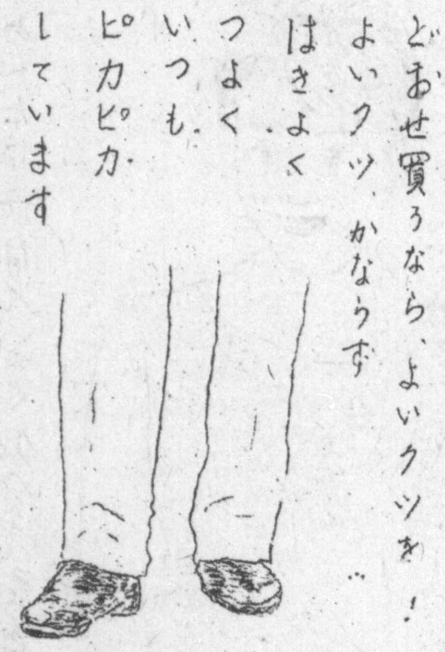 どおせ買うなら、よいクツを!
よいクツ、かならず
はきよく
つよく
いつも
ピカピカ
しています